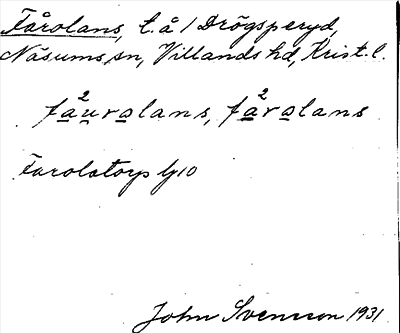 Fårolans, t.å / Drögsperyd,
Näsums sn, Villands hd, Krist. l.
fa²urolans, få²rolans
Farolstorp lj 10
John Svensson 1931